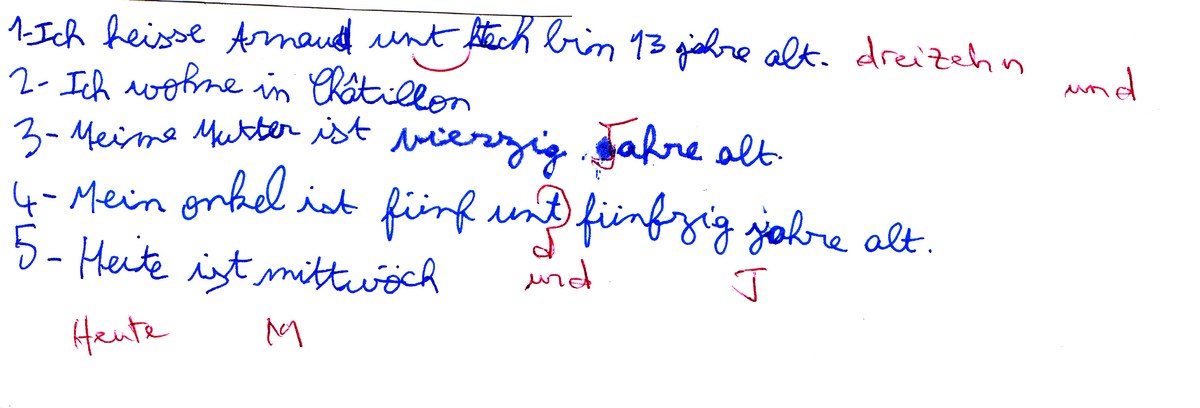 1-Ich heisse Arnaud unt Ich bin 13 jahre alt. dreizehn
und
2- Ich wohne in Châtillon
3- Meine Mutter ist vierzig Jahre alt.
4- Mein onkel ist fünf unt fünfzig jahre alt.
d
und J
5- Heite ist mittwöch
Heute M